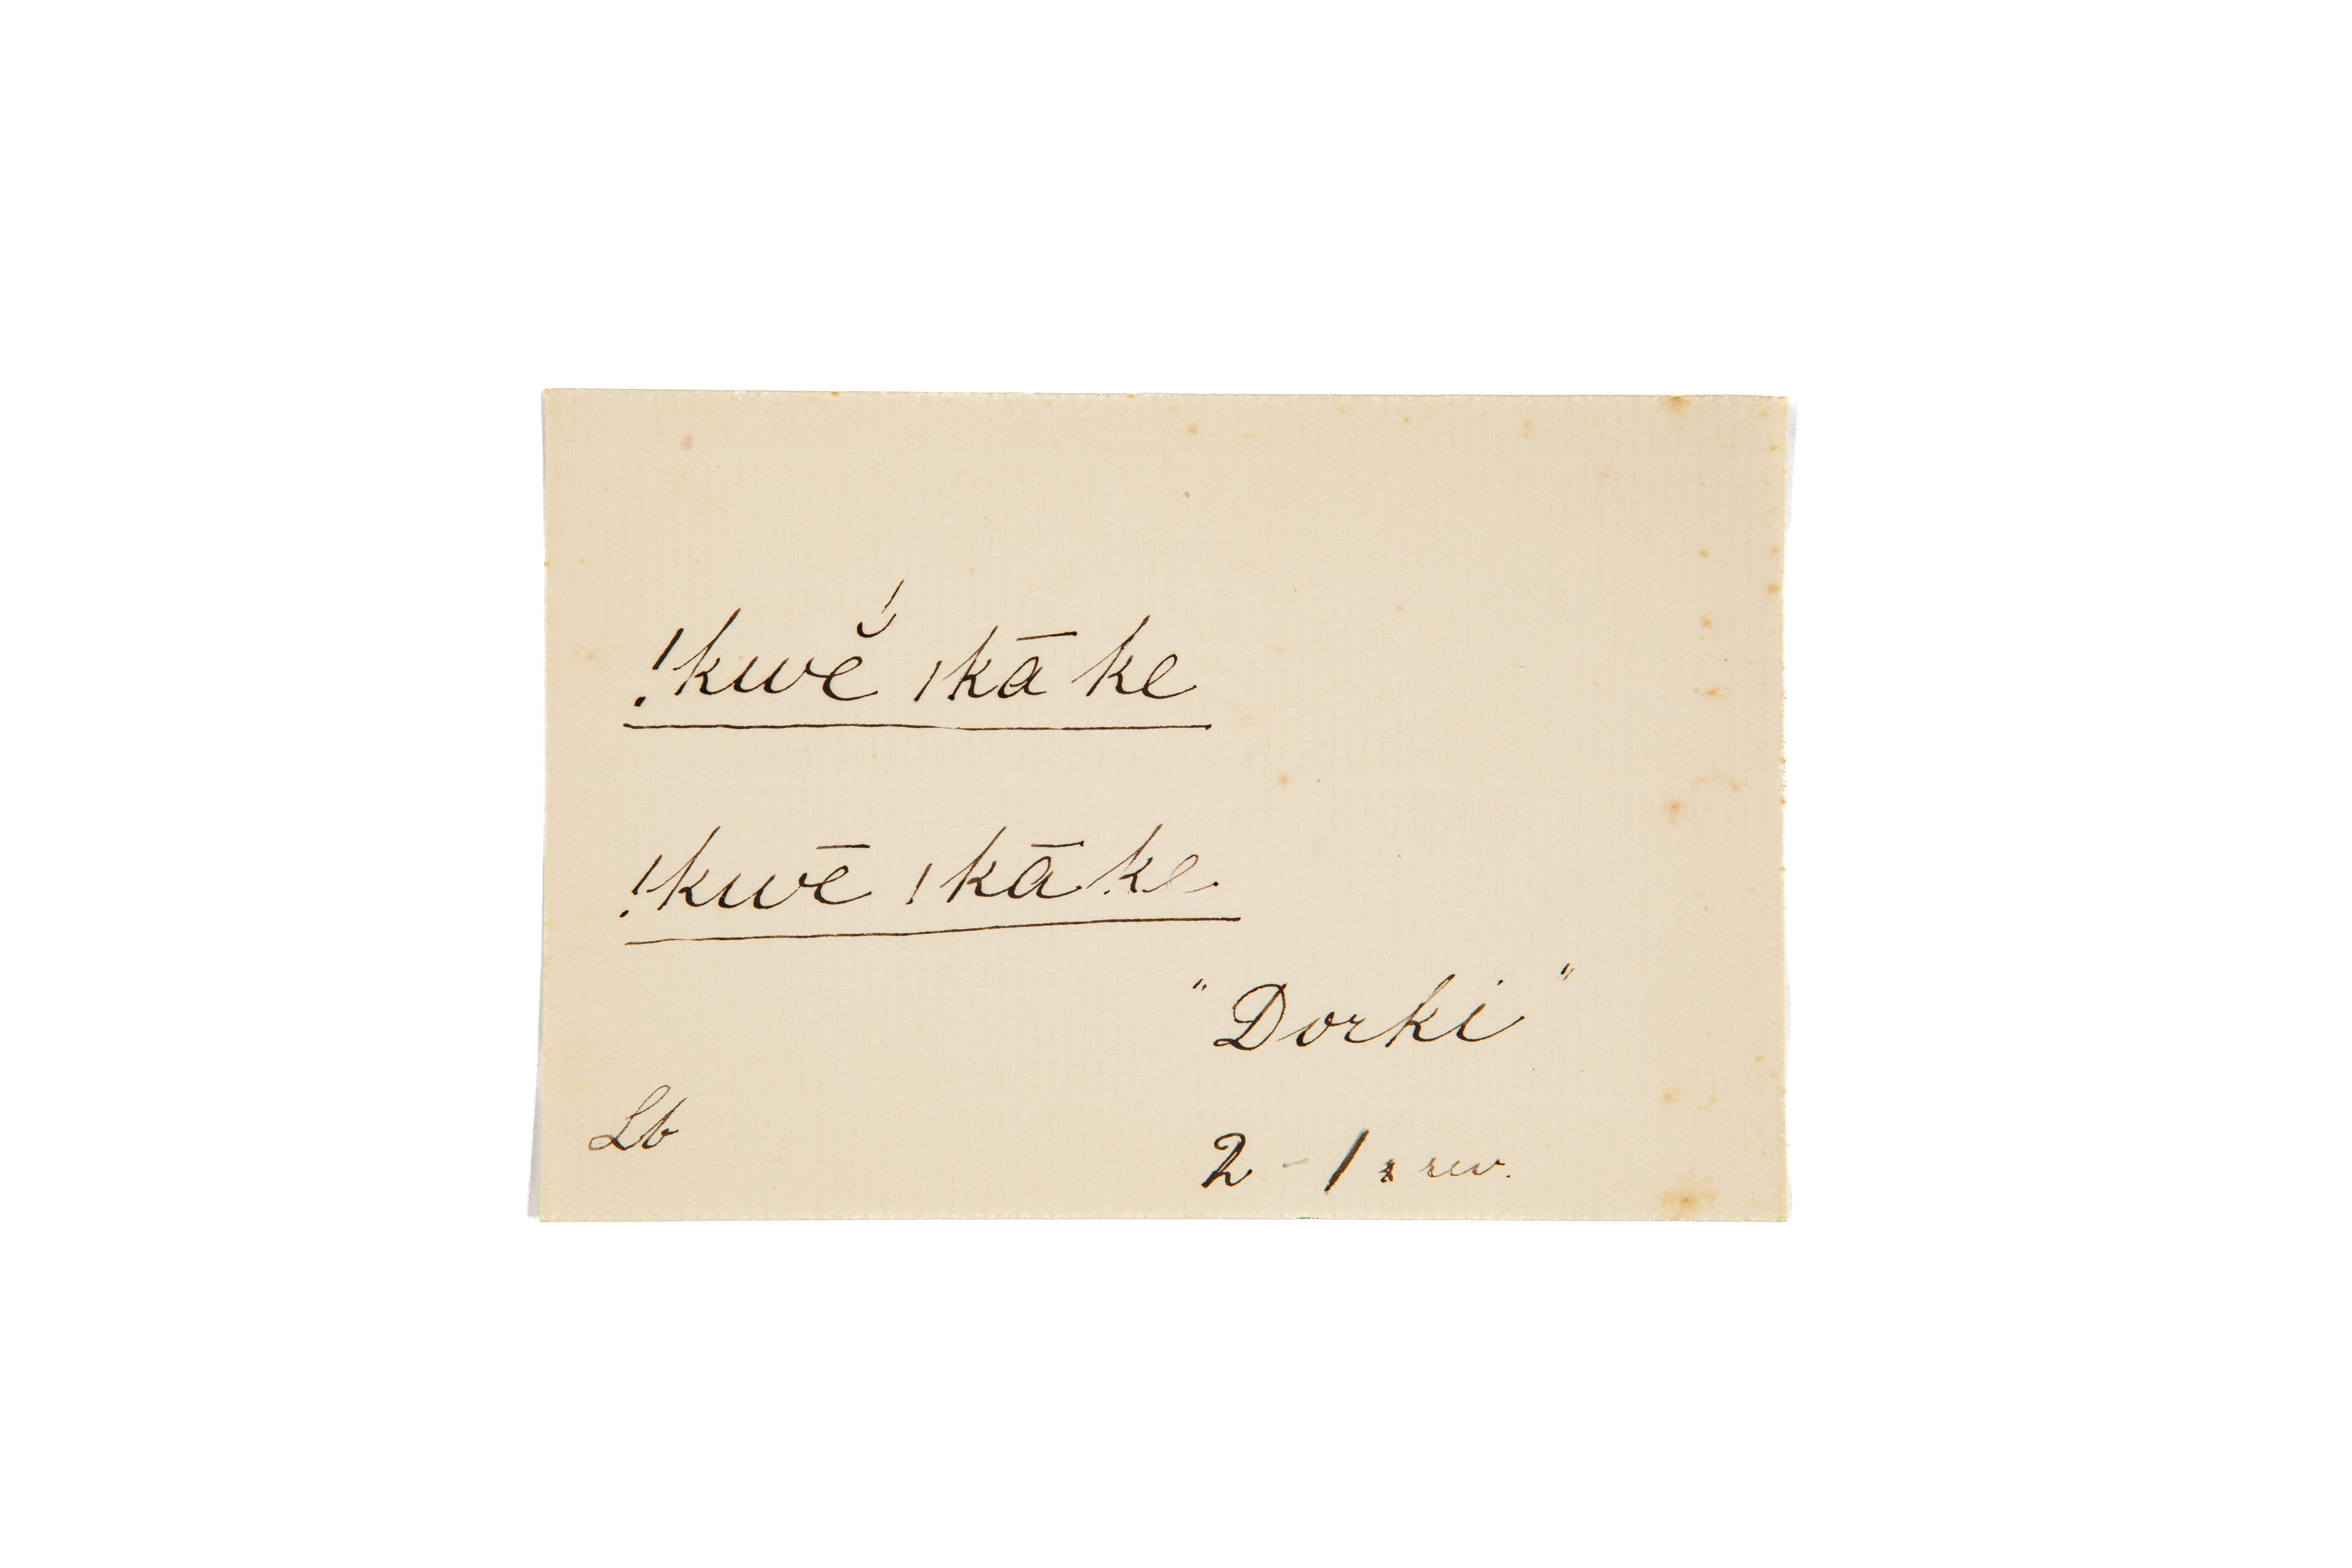 !kwĕ́ ǀkā ke
!kwē ǀkā ke
"Dorki"
Lb
2 - 1 rev.